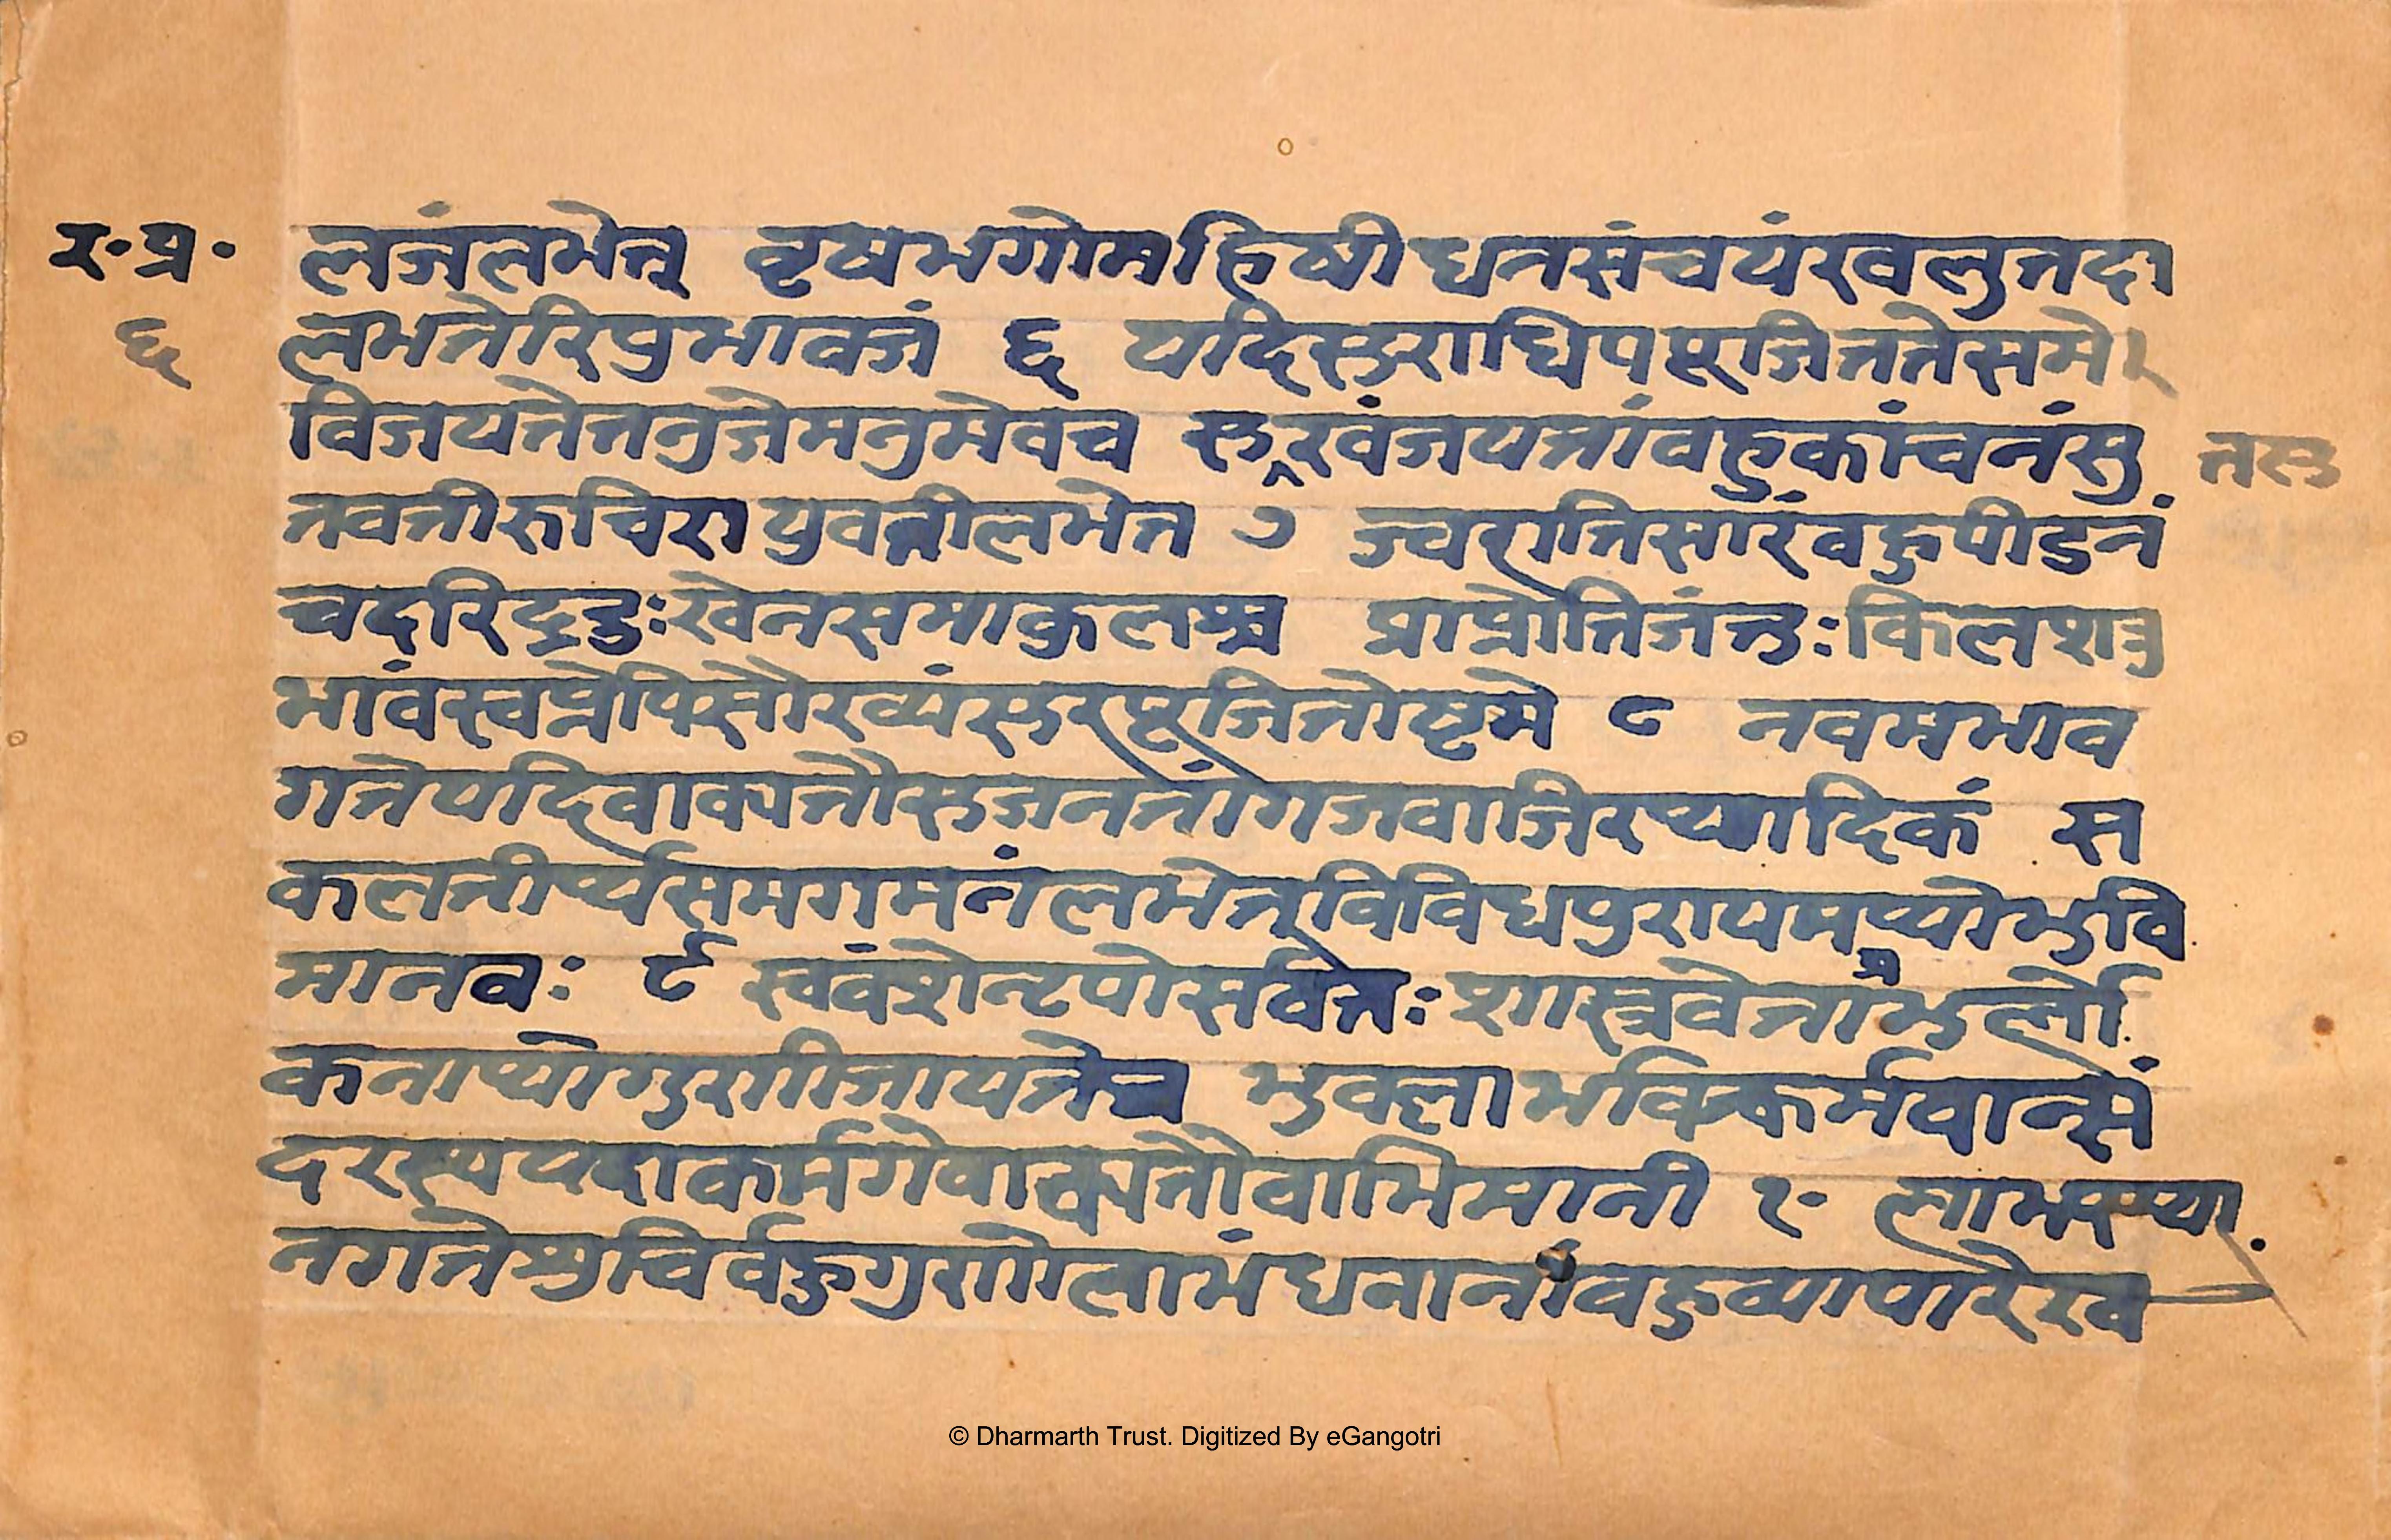 र॰प्र॰
६
लजंलभेत् वृषभगोमहिषीधनसंचयंखलुतदा
लभतेरिपुभावजं ६ यदिसुराधिपपूजिततेसमे
विजयतेतनुजेमनुमेवच सुखंजयतांवहुकांचनंसु
तसु
तवतीरुचिरायुवतीलभेत ७ ज्वरातिसारंवहुपीडनं
चदरिद्रदुःखेनसमाकुलश्च प्राप्नोतिजंतुःकिलशत्रु
भावंस्वप्नेपिसौख्यंसुरपूजितोमृमे ८ नवमभाव
गतेयदिवाक्पतौसुजनतांगजवाजिरथादिकं स
कलतीर्थसमगमनंलभेत्विविधपुरायमथोभुवि
मानवः ९ स्ववंशेन्टपोसर्वतः शास्त्रवेत्ताप्रभुर्लो
कनाथोगुणीजायतेच भुवल्लाभविकर्मवान्सं
दरस्ययदाकर्मगेवाक्पतौवाभिमानी १॰ लाभस्था
नगतेशुचिर्वहुगुणोलाभंधनानांवहुव्यापारेरव
© Dharmarth Trust. Digitized By eGangotri